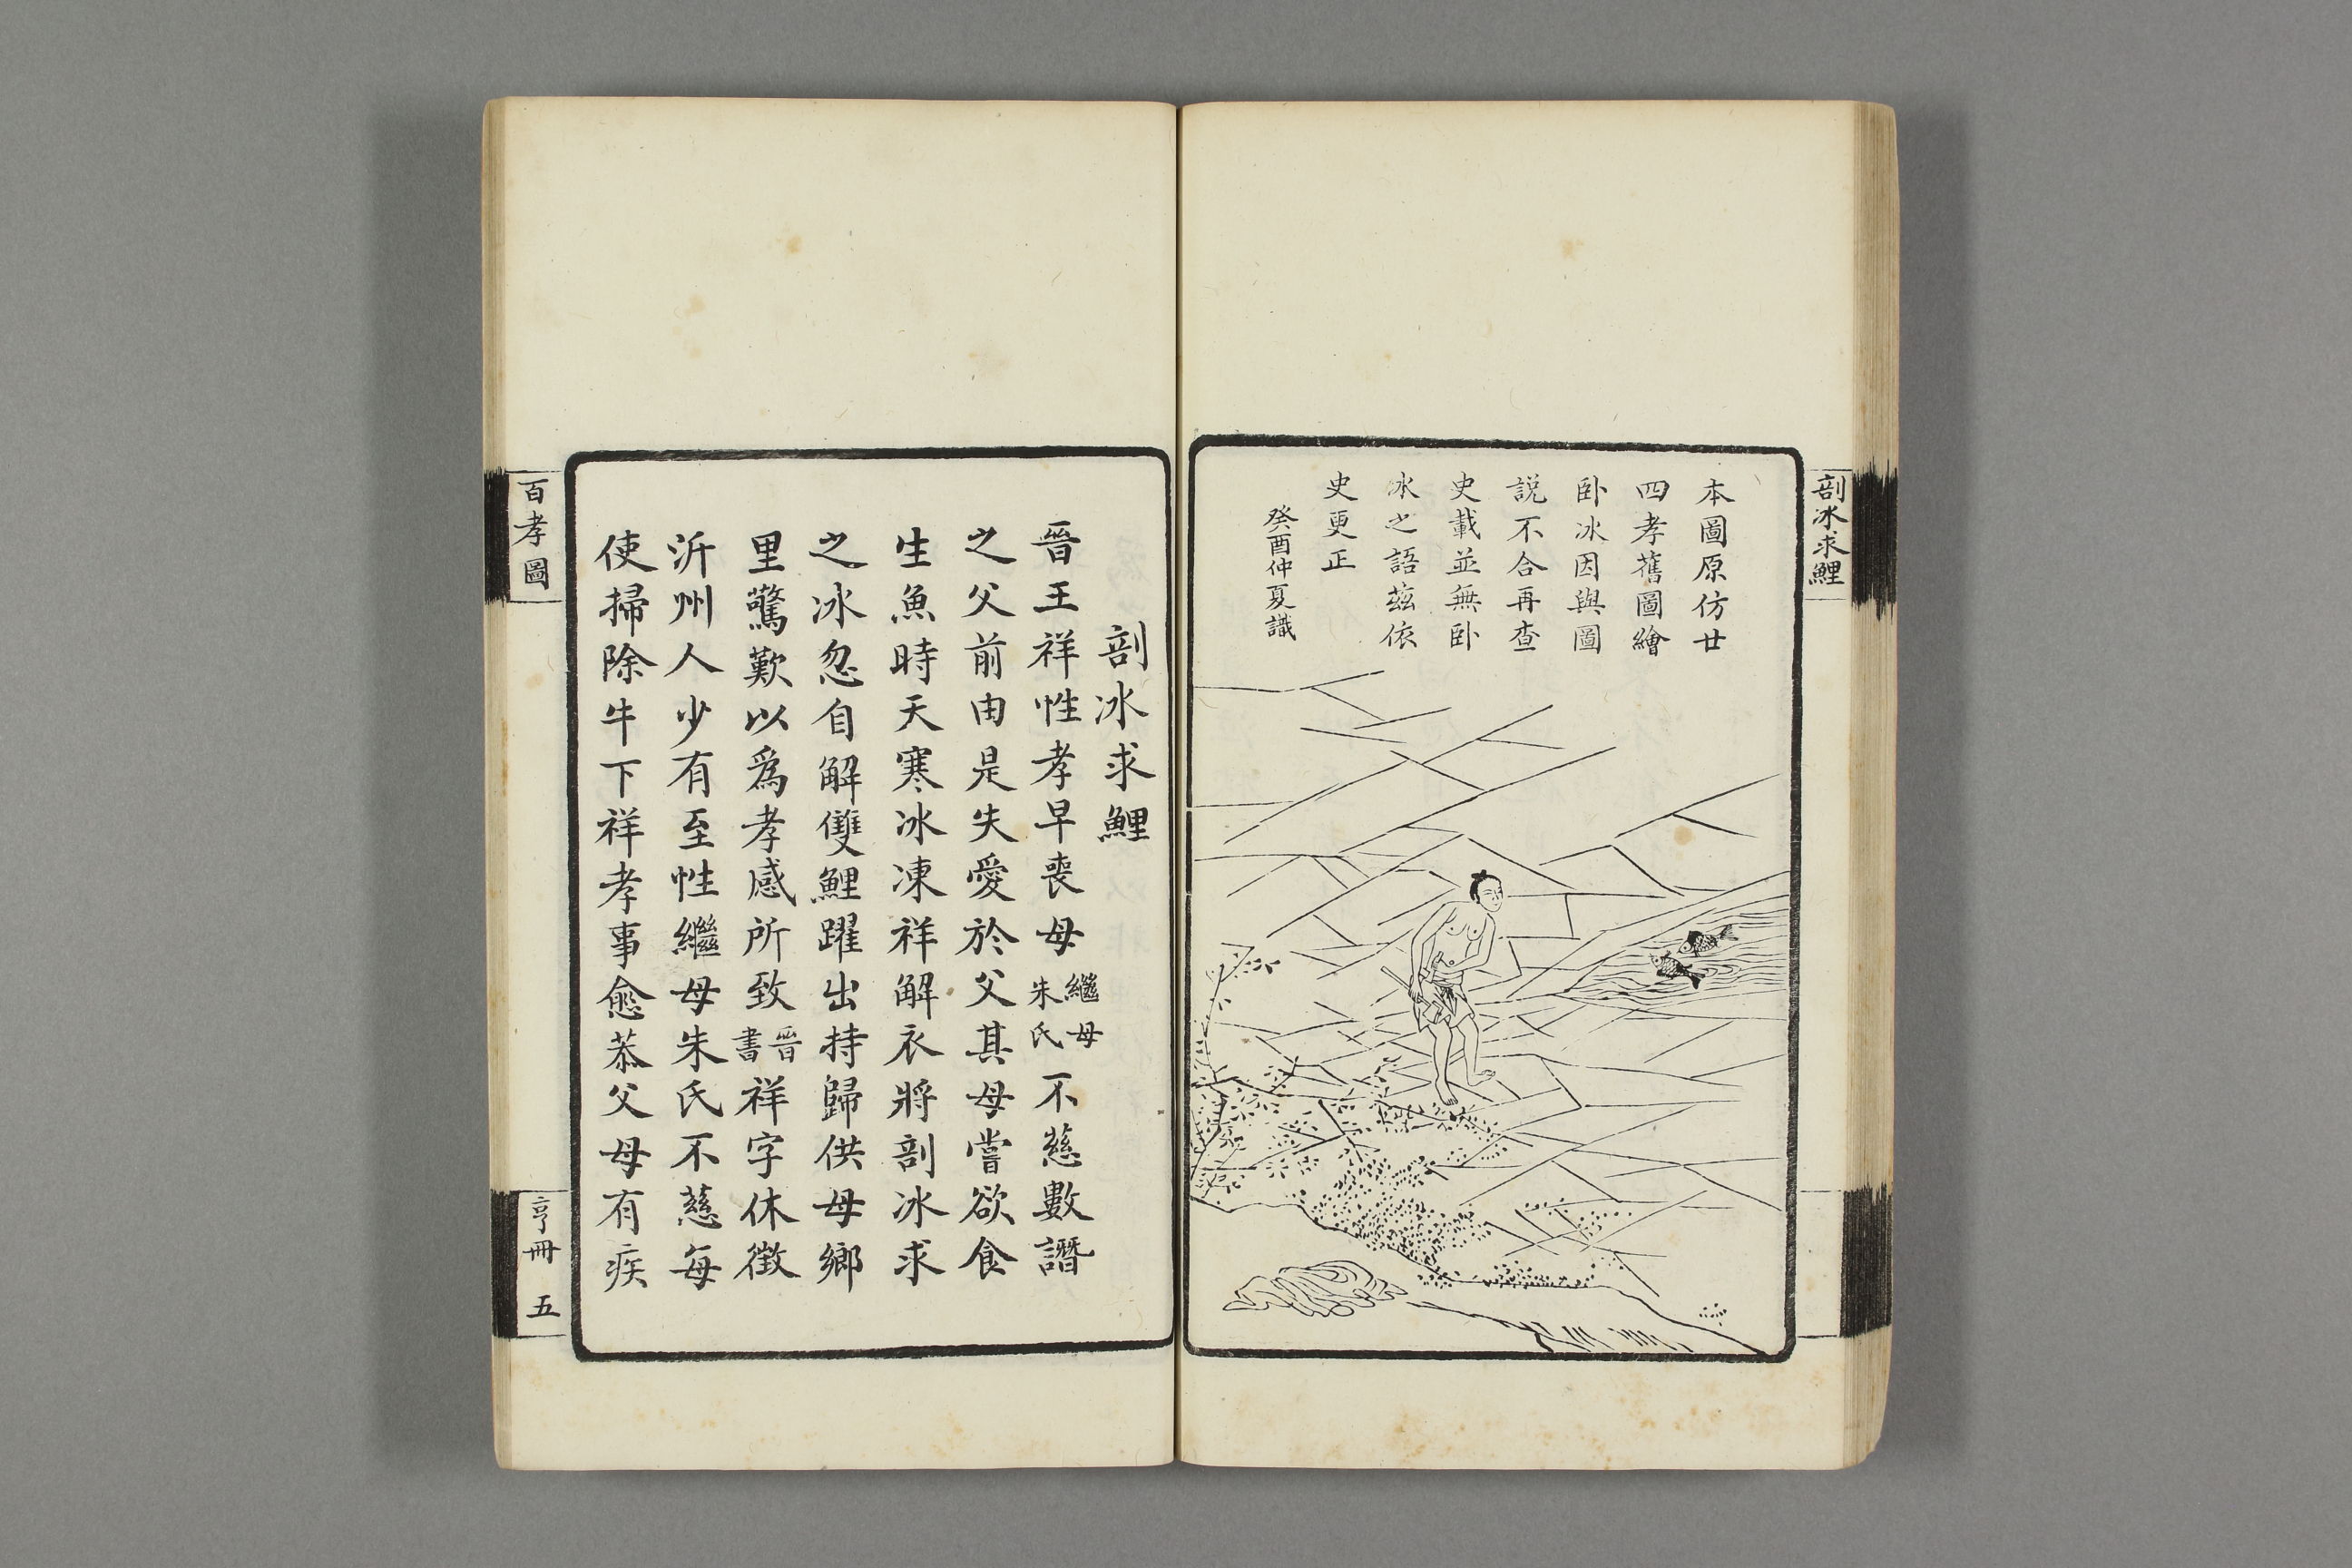 剖冰求鯉
本圖原仿廿
四孝舊圖繪
卧冰因與圖
説不合再查
史載並無卧
冰之語茲依
史更正
癸酉仲夏識
剖冰求鯉
晉王祥性孝早喪母繼母朱氏不慈數譖
之父前由是失愛於父其母嘗欲食
生魚時天寒冰凍祥解衣將剖冰求
之冰忽自解雙鯉躍出持歸供母鄉
里驚歎以爲孝感所致晉書祥字休徵
沂州人少有至性繼母朱氏不慈每
使掃除牛下祥孝事愈恭父母有疾
百孝圖
亨冊 五